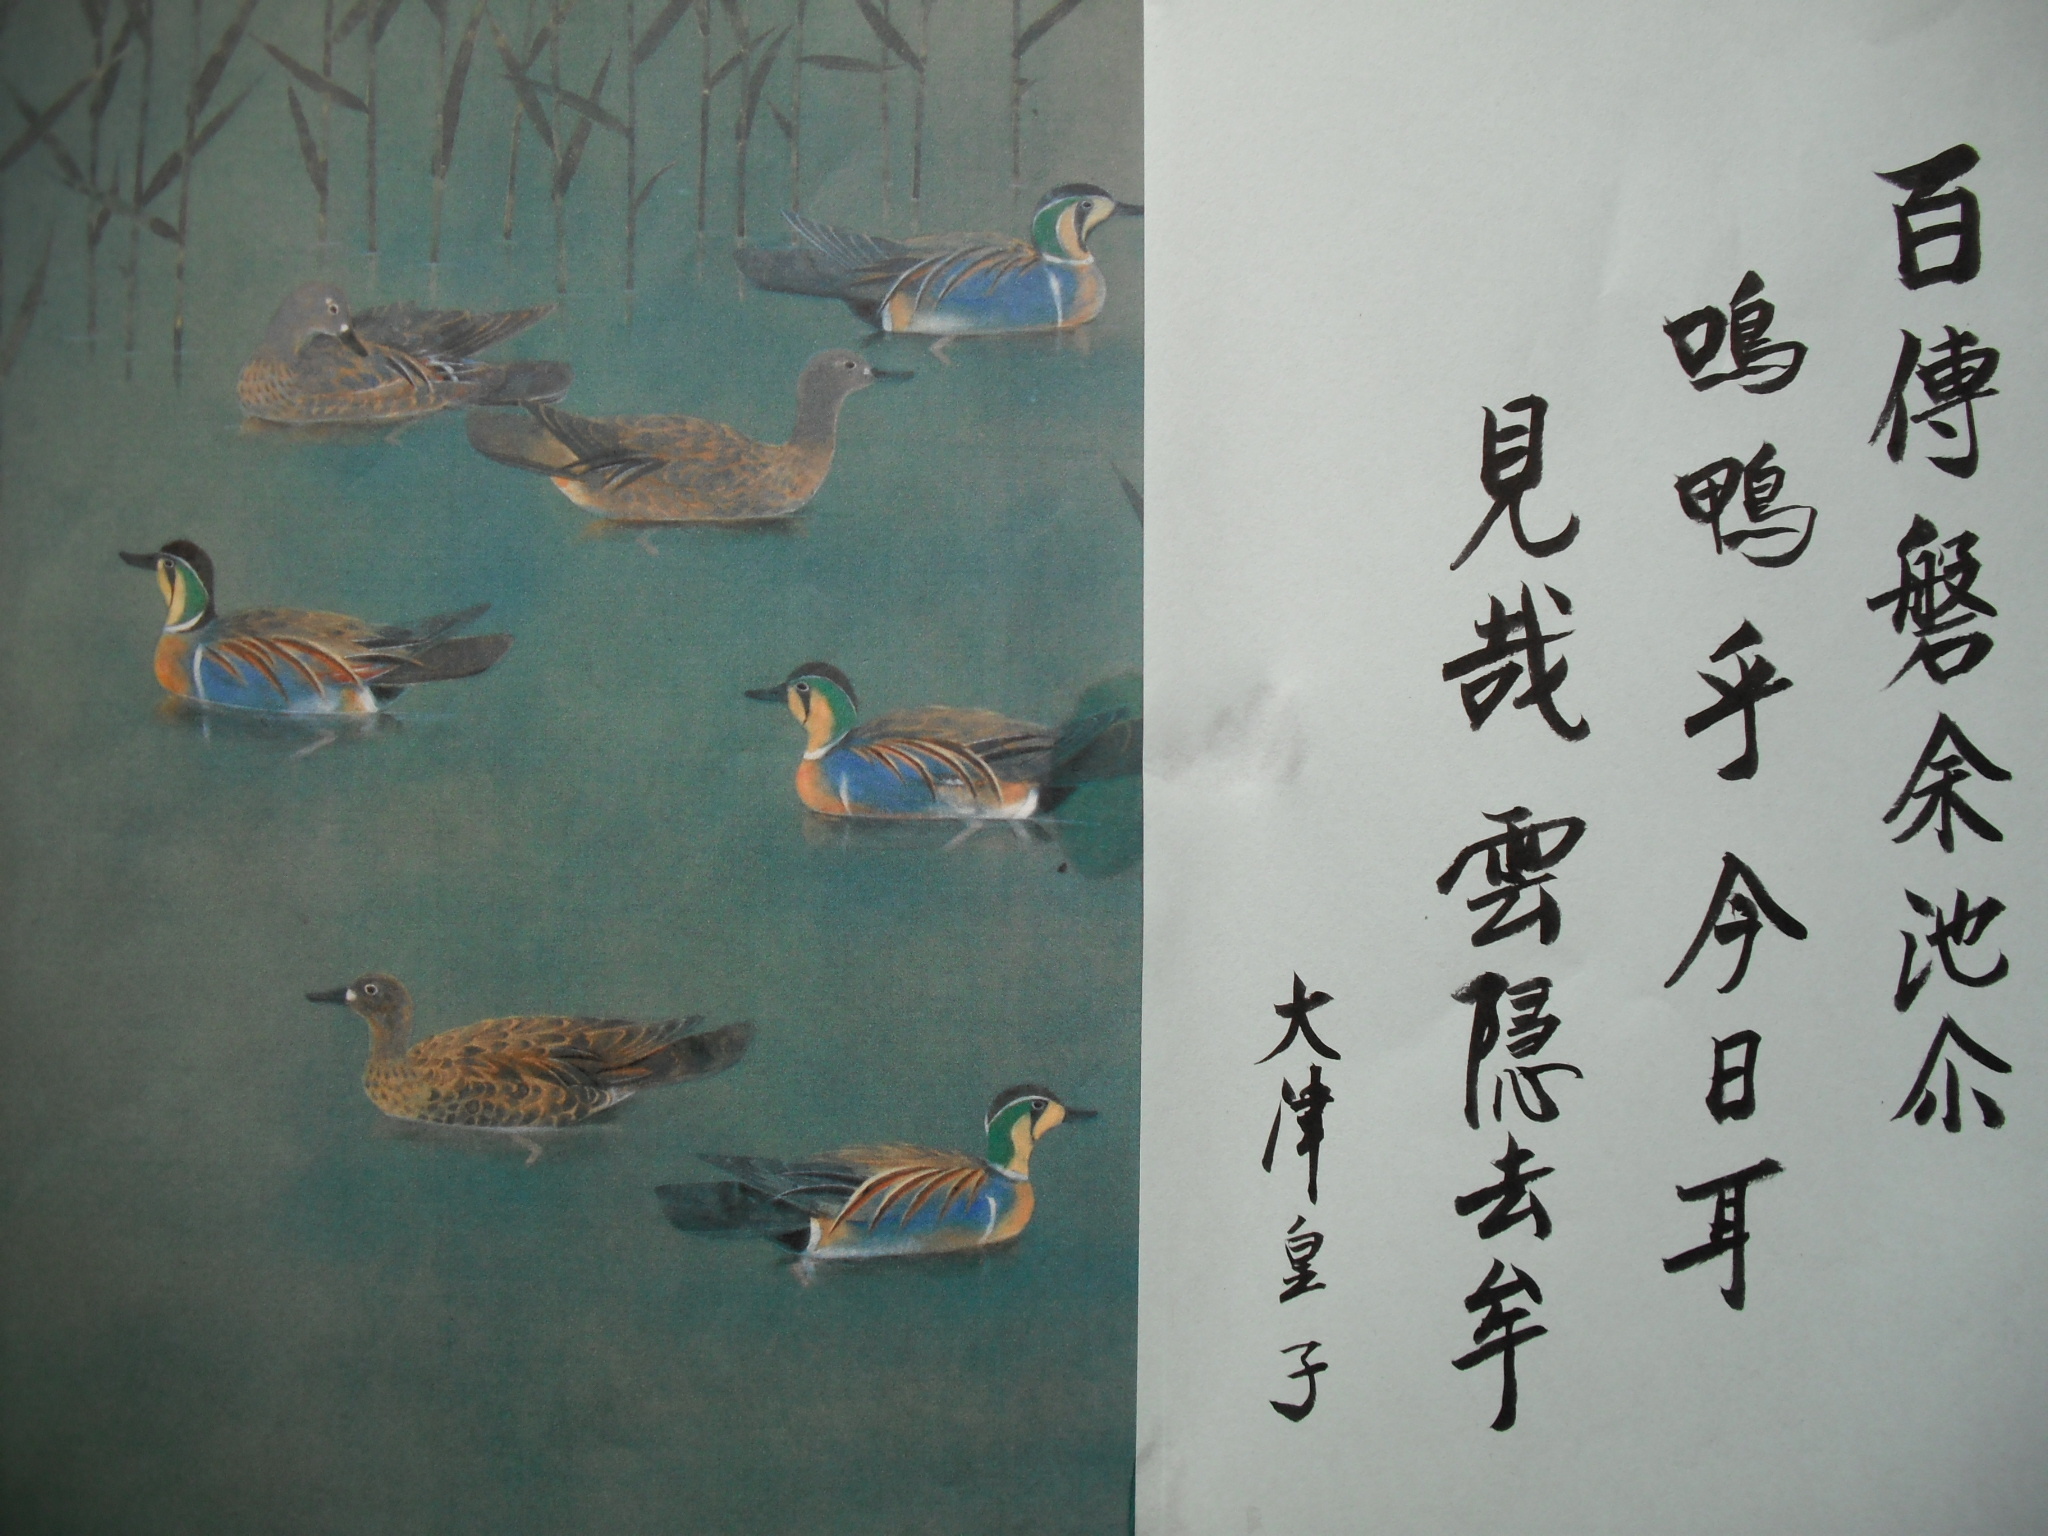 百傳磐余池尒
鳴鴨乎今日耳
見哉雲隠去牟
大津皇子